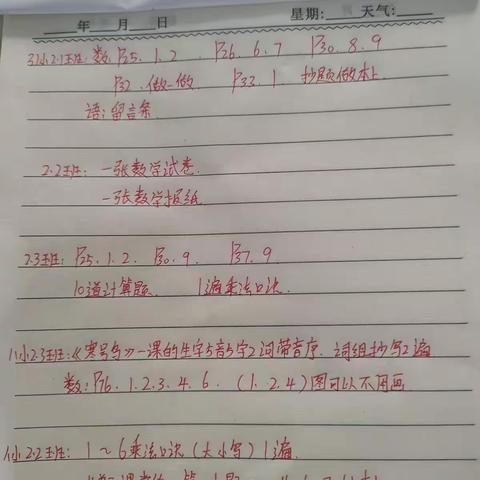 年 月 日 星期: 天气:
31小2.1班: 数 P25. 1. 2. P26. 6. 7 P30. 8. 9
P32. 做一做. P33. 1. 抄题做本上
语: 留言条
2.2班: 一张数学试卷.
一张数学报纸.
2.3班: P25. 1. 2. P30. 9. P37. 9
10道计算题. 1遍乘法口诀.
八小2.3班:《寒号鸟》一课的生字5音5字2词带音序. 词组抄写2遍
数: P76. 1. 2. 3. 4. 6. (1. 2. 4) 图可以不用画
小2.2班: 1~6乘法口诀 (大小写) 1遍.